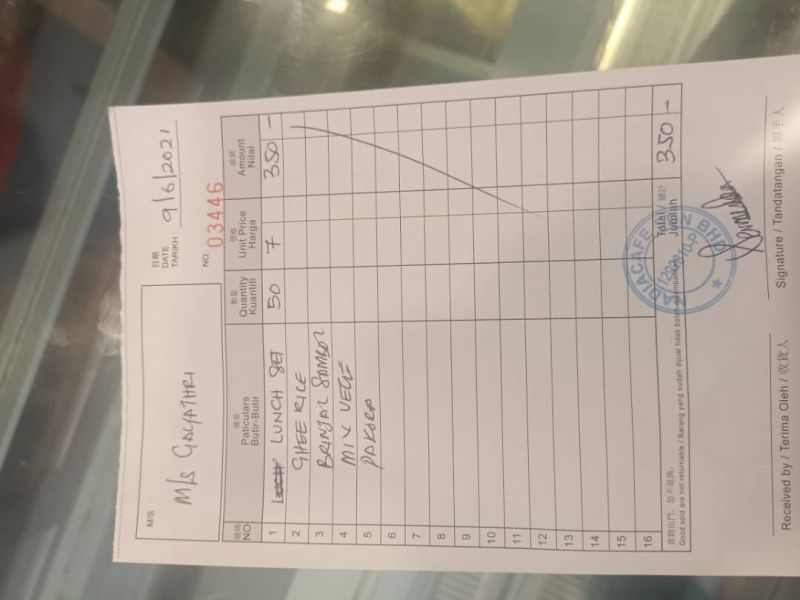 M/S
M/s GAYATHRI
日期
DATE
TARIKH : 9/6/2021
NO. 03446
號碼
NO
貨名
Paticulars
Butir-Butir
數量
Quantity
Kuantiti
價格
Unit Price
Harga
銀額
Amount
Nilai
1 LUNCH SET 50 7 350 –
2 GHEE RICE
3 BRINJAL SAMBOL
4 MIX VEGE
5 PAKORA
6
7
8
9
10
11
12
13
14
15
16
貨物出門，恕不退換。
Good sold are not returnable / Barang yang sudah dijual tidak boleh
Total / 總計
Jumlah
350 –
Received by / Terima Oleh / 收貨人
Signature / Tandatangan / 經手人